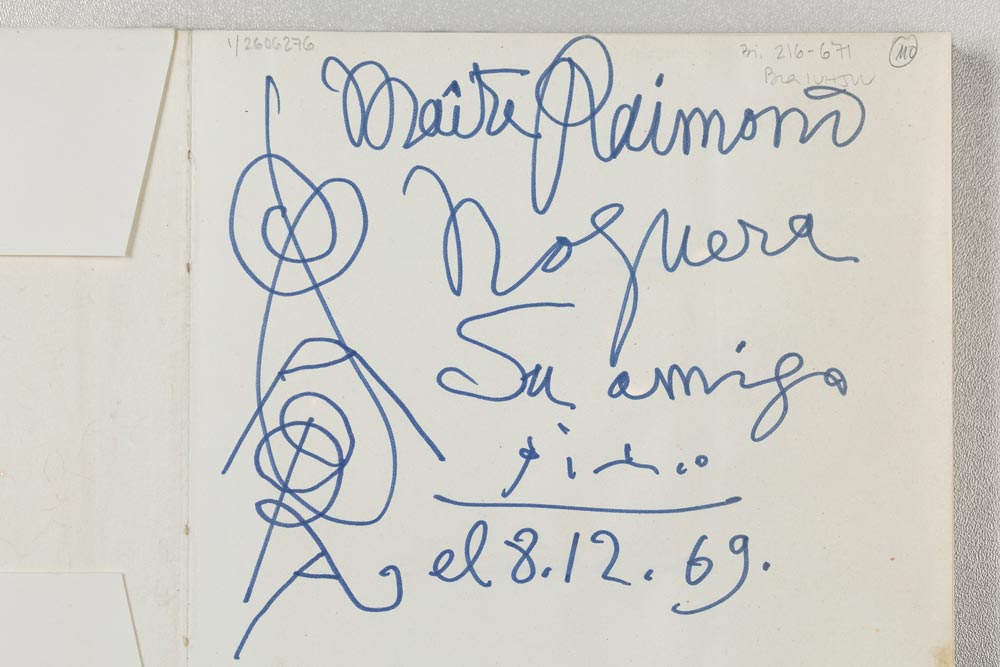 1/2606276
Bi. 216-671
110
Maître Raimond
Noguera
Su amigo
Picasso
el 8.12.69.